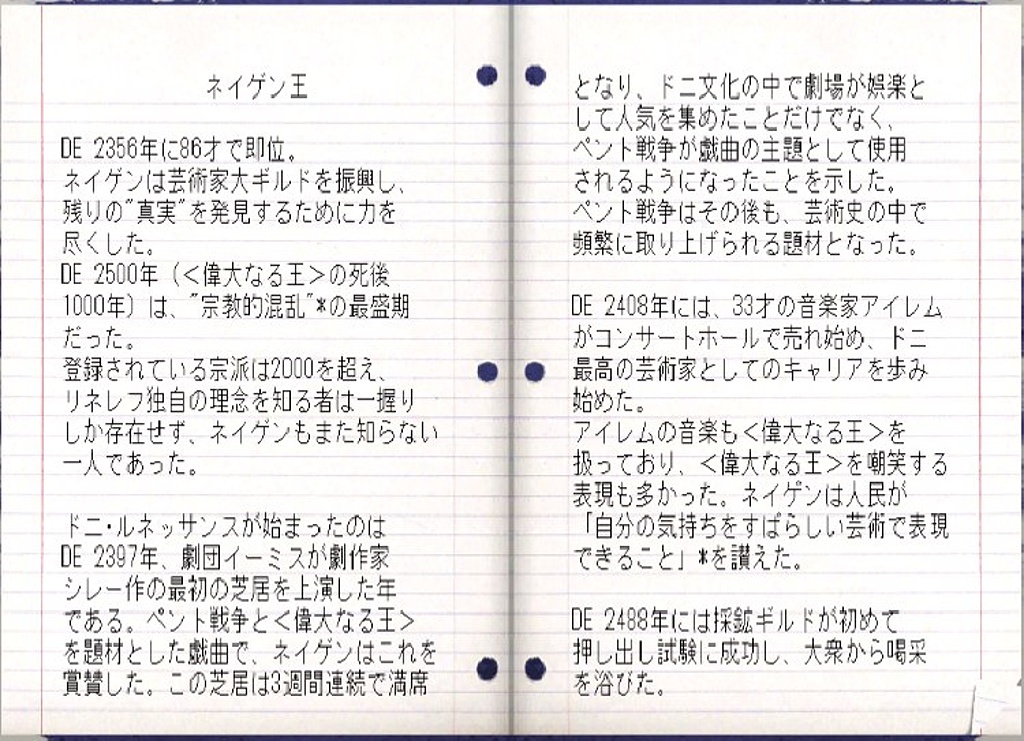 ネイゲン王
DE 2356年に86才で即位。
ネイゲンは芸術家大ギルドを振興し、
残りの"真実"を発見するために力を
尽くした。
DE 2500年（＜偉大なる王＞の死後
1000年）は、"宗教的混乱"*の最盛期
だった。
登録されている宗派は2000を超え、
リネレフ独自の理念を知る者は一握り
しか存在せず、ネイゲンもまた知らない
一人であった。
ドニ・ルネッサンスが始まったのは
DE 2397年、劇団イーミスが劇作家
シレー作の最初の芝居を上演した年
である。ペント戦争と＜偉大なる王＞
を題材とした戯曲で、ネイゲンはこれを
賞賛した。この芝居は3週間連続で満席
となり、ドニ文化の中で劇場が娯楽と
して人気を集めたことだけでなく、
ペント戦争が戯曲の主題として使用
されるようになったことを示した。
ペント戦争はその後も、芸術史の中で
頻繁に取り上げられる題材となった。
DE 2408年には、33才の音楽家アイレム
がコンサートホールで売れ始め、ドニ
最高の芸術家としてのキャリアを歩み
始めた。
アイレムの音楽も＜偉大なる王＞を
扱っており、＜偉大なる王＞を嘲笑する
表現も多かった。ネイゲンは人民が
「自分の気持ちをすばらしい芸術で表現
できること」*を讃えた。
DE 2488年には採鉱ギルドが初めて
押し出し試験に成功し、大衆から喝采
を浴びた。